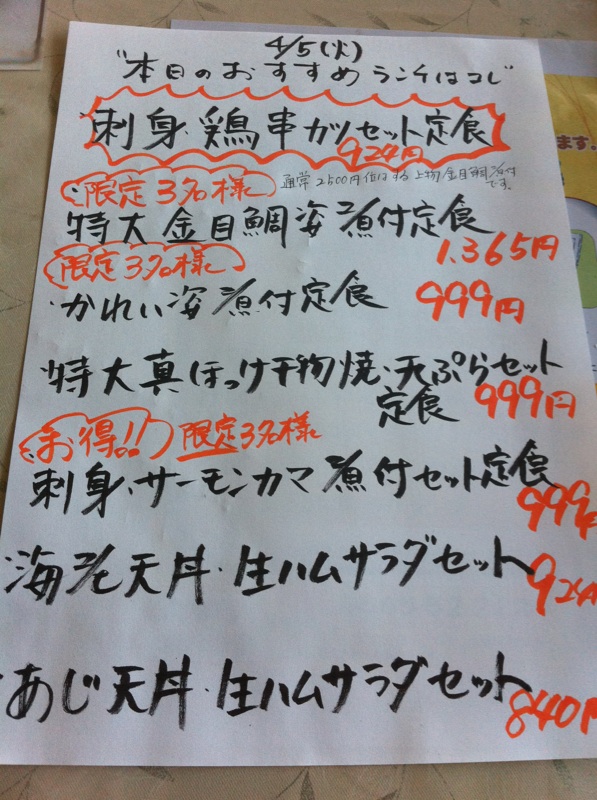 4/5(火)
"本日のおすすめランチはコレ"
刺身・鶏串カツセット定食
924円
限定3名様
通常2500円位はする上物金目鯛煮付
です。
特大金目鯛姿煮付定食
1.365円
限定3名様
かれい姿煮付定食 999円
特大真ほっけ干物焼・天ぷらセット
定食 999円
お得!! 限定3名様
刺身・サーモンカマ煮付セット定食
999円
海老天丼・生ハムサラダセット
924円
あじ天丼・生ハムサラダセット
840円
ます。